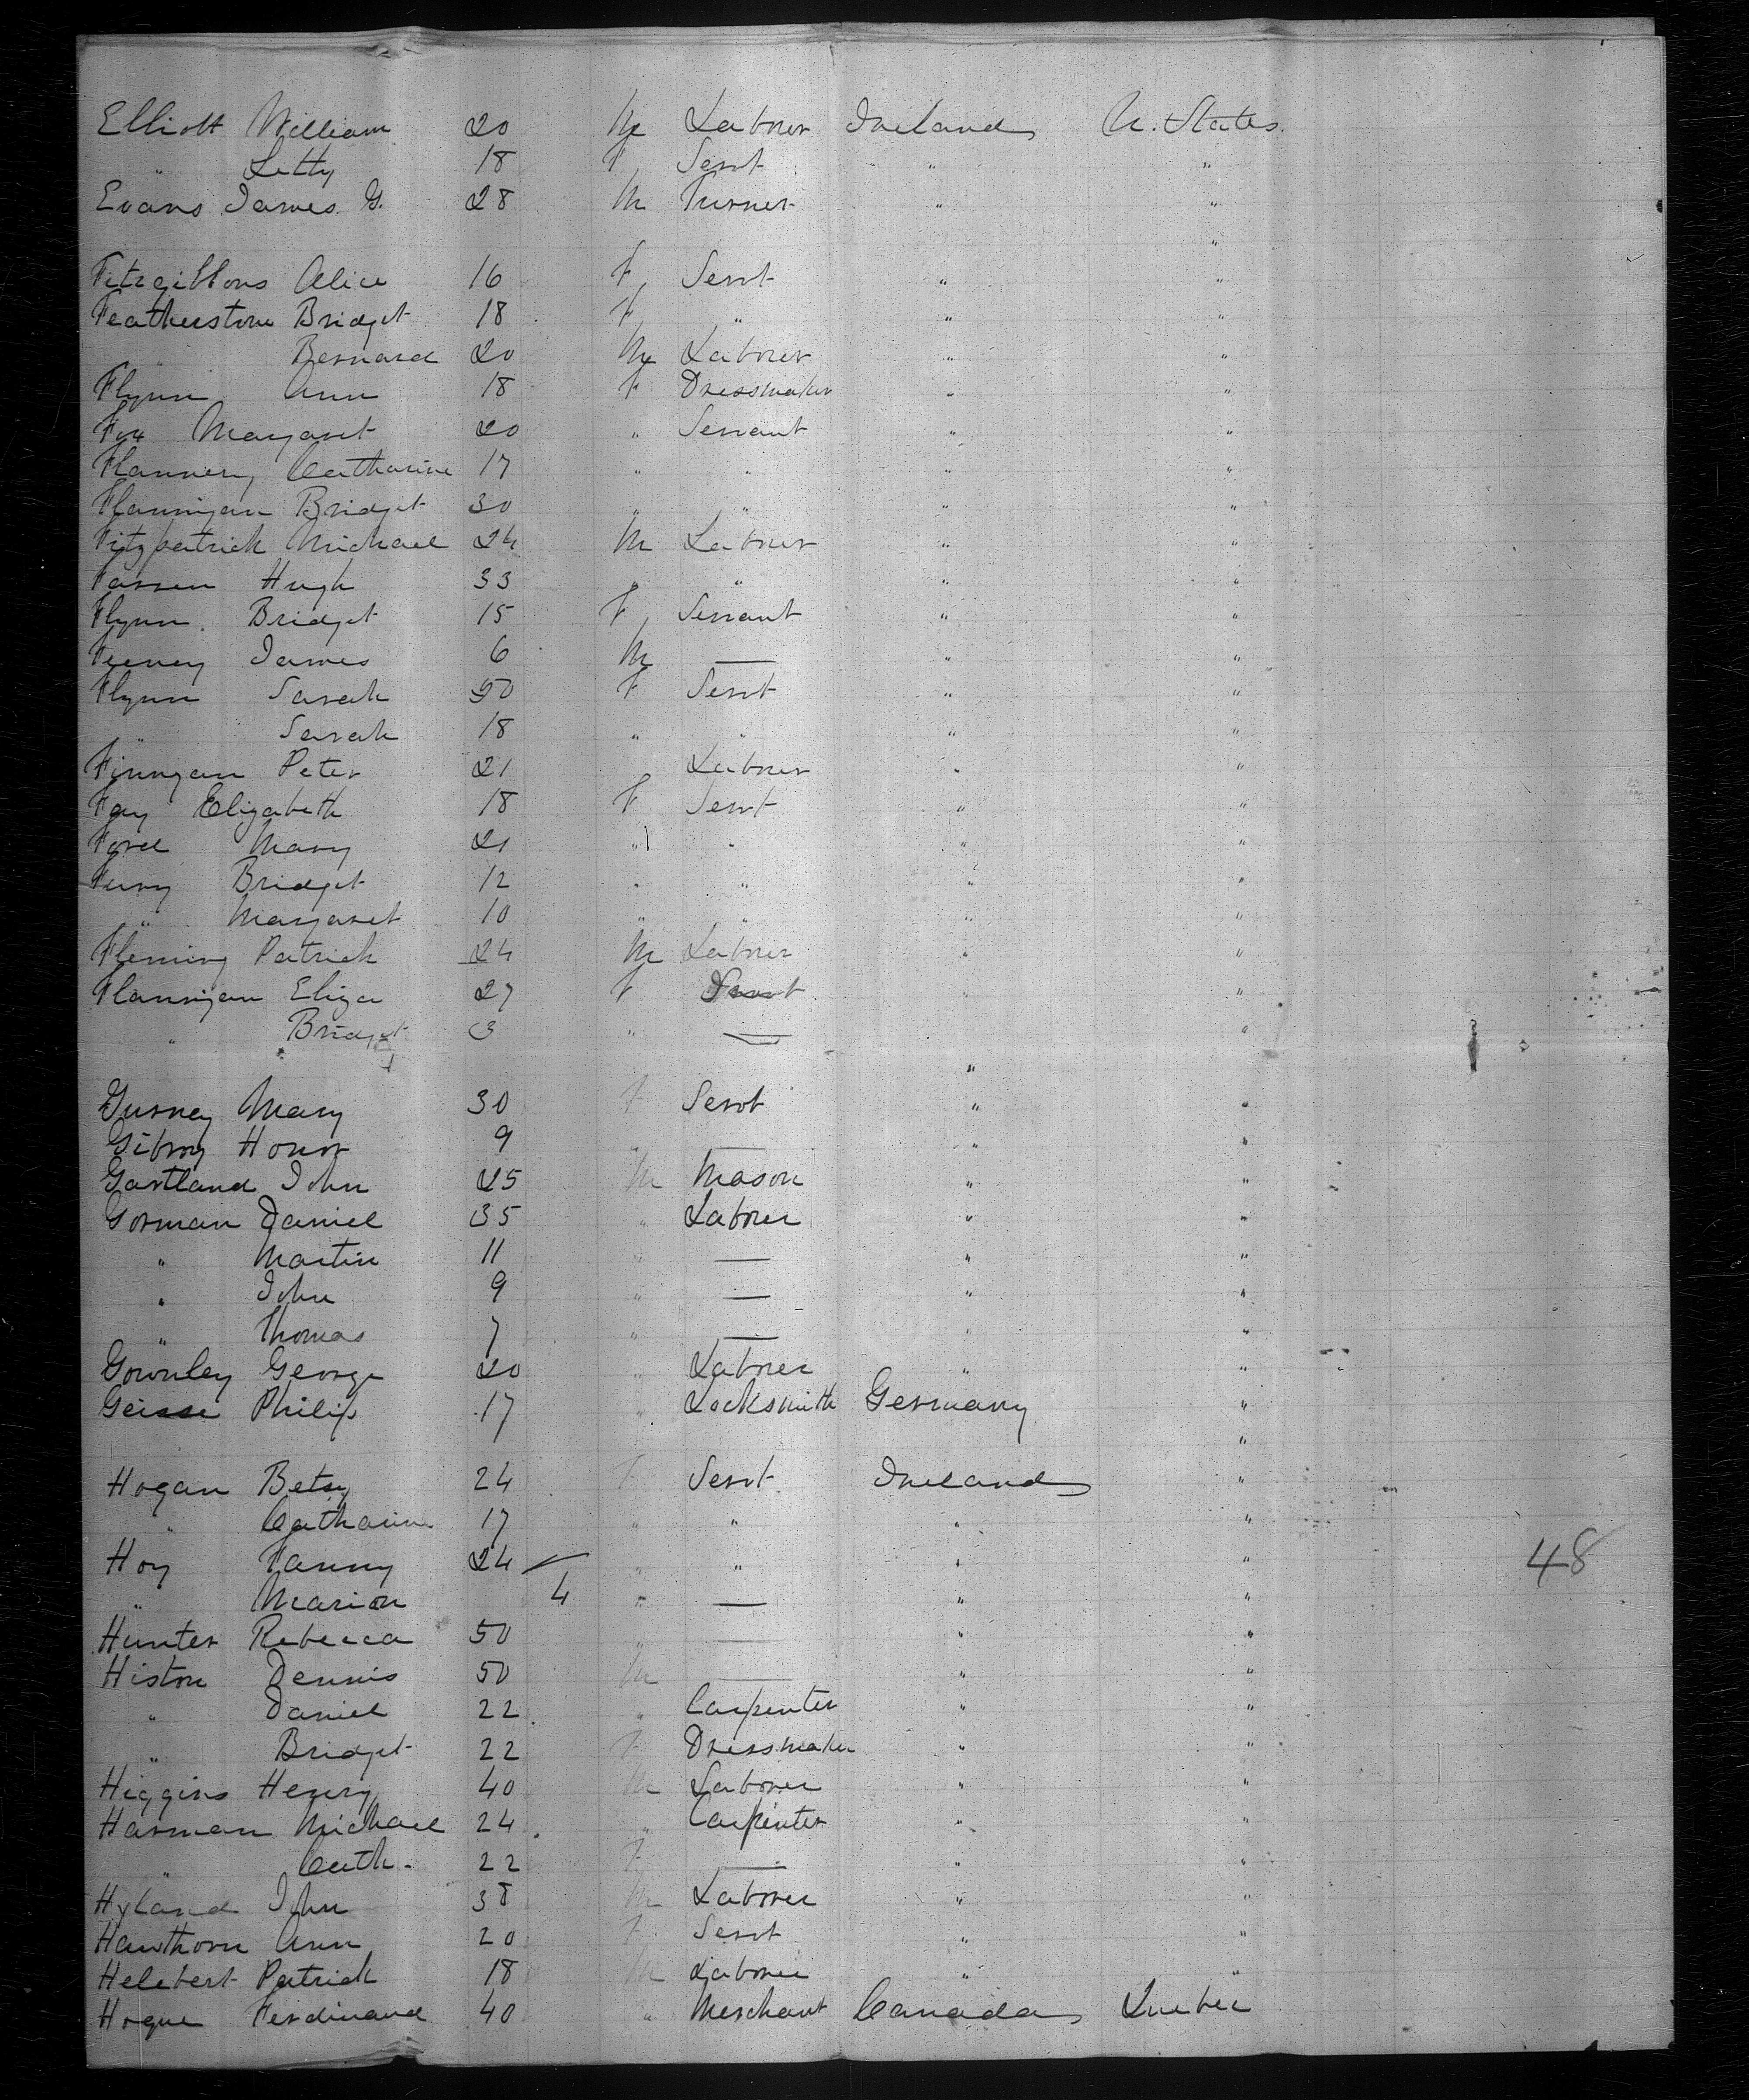 Elliott William 20 M Laborer Ireland U. States.
" Letty 18 F Servt " "
Evans James G. 28 M Turner " "
"
Fitzgibbons Alice 16 F Servt " "
Featherstone Bridget 18 F " " "
" Bernard 20 M Laborer " "
Flynn Ann 18 F Dressmaker " "
Fox Margaret 20 " Servant " "
Flannery Catharine 17 " " " "
Flannigan Bridget 30 " " " "
Fitzpatrick Michael 24 M Laborer " "
Farren Hugh 33 " " " "
Flynn Bridget 15 F Servant " "
Feeney James 6 M — " "
Flynn Sarah 50 F Servt " "
" Sarah 18 " " " "
Finnigan Peter 21 Laborer " "
Fay Elizabeth 18 F Servt " "
Ford Mary 21 " " " "
Fury Bridget 12 " " " "
" Margaret 10 " " " "
Fleming Patrick 24 M Laborer " "
Flannigan Eliza 27 F Servt " "
" Bridget 3 " — "
"
Gurney Mary 30 F Servt " "
Gilroy Honor 9 " — " "
Gartland John 25 M Mason " "
Gorman Daniel 35 " Laborer " "
" Martin 11 " — " "
" John 9 " — " "
" Thomas 7 " — " "
Gownley George 20 " Laborer " "
Geisse Philip 17 " Locksmith Germany "
"
Hogan Betsy 24 F Servt. Ireland "
" Catharine 17 " " " "
Hoy Fanny 24 " " " " 48
" Marion 4 " — " "
Hunter Rebecca 50 " — " "
Histon Dennis 50 M — " "
" Daniel 22 " Carpenter " "
" Bridget 22 F Dressmaker " "
Higgins Henry 40 M Laborer " "
Harman Michael 24 " Carpenter " "
" Cath. 22 F — " "
Hyland John 38 M Laborer " "
Hawthorn Ann 20 F Servt " "
Helebert Patrick 18 M Laborer " "
Hogue Ferdinand 40 " Merchant Canada Quebec